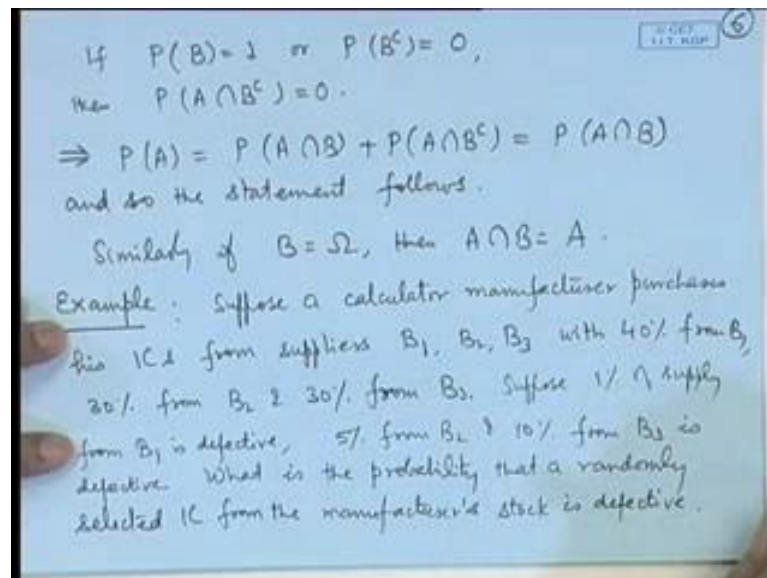 6
© CET
I.I.T. KGP
If P(B)=1 or P(Bᶜ)=0,
then P(A∩Bᶜ)=0.
⇒ P(A) = P(A∩B) + P(A∩Bᶜ) = P(A∩B)
and so the statement follows.
Similarly if B=Ω, then A∩B=A.
Example: Suppose a calculator manufacturer purchases
his ICs from suppliers B₁, B₂, B₃ with 40% from B₁,
30% from B₂ & 30% from B₃. Suppose 1% of supply
from B₁ is defective, 5% from B₂ & 10% from B₃ is
defective. What is the probability that a randomly
selected IC from the manufacturer's stock is defective.